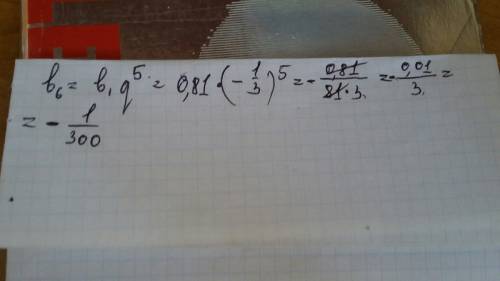 b₆ = b₁ q⁵ = 0,81 · (-1/3)⁵ = - 0,81/81·3 = - 0,01/3 =
= - 1/300